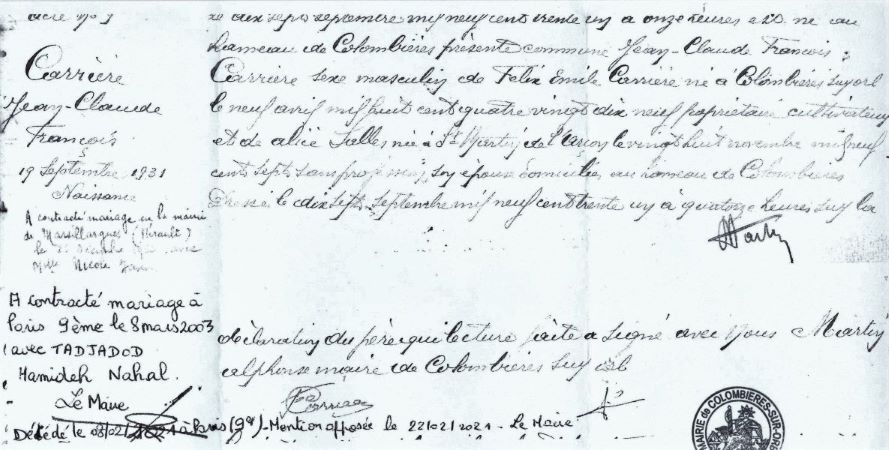 acte nº 7
Carrière
Jean-Claude
François
19 Septembre 1931
Naissance
A contracté mariage en la mairie
de Marsillargues (Hérault)
le
Nicole
A contracté mariage à
Paris 9ème le 8 mars 2003
avec TADJADOD
Hamideh Nahal.
Le Maire
Le dix sept septembre mil neuf cent trente un a onze heures est né au
hameau de Colombières présente commune Jean-Claude François
Carrière sexe masculin de Félix Emile Carrière né à Colombières sur orb
le neuf avril mil huit cent quatre vingt dix neuf propriétaire cultivateur
et de alice Salles née à St Martin de l'arçon le vingt huit novembre mil neuf
cent sept sans profession son épouse domiciliés au hameau de Colombières
Dressé le dix sept septembre mil neuf cent trente un à quatorze heures sur la
Martin
déclaration du père qui lecture faite a signé avec Nous Martin
alphonse maire de Colombières sur orb
Carrière
Décédé le 08/02/2021 à Paris (9e) Mention apposée le 22/02/2021 - Le Maire
MAIRIE de COLOMBIERES-SUR-ORB